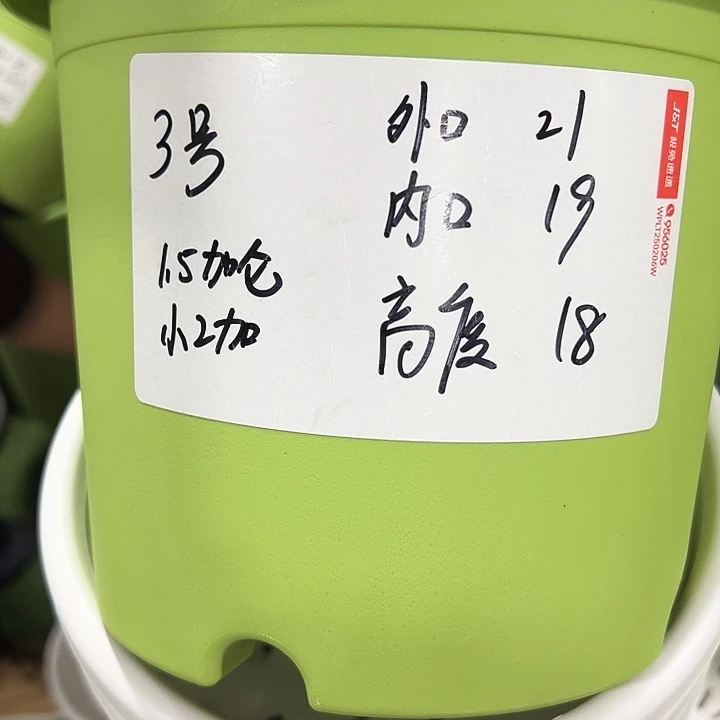 3号
1.5加仑
小2加
外口 21
内口 19
高度 18
J&T 极兔速递
956025
WPLT250206W